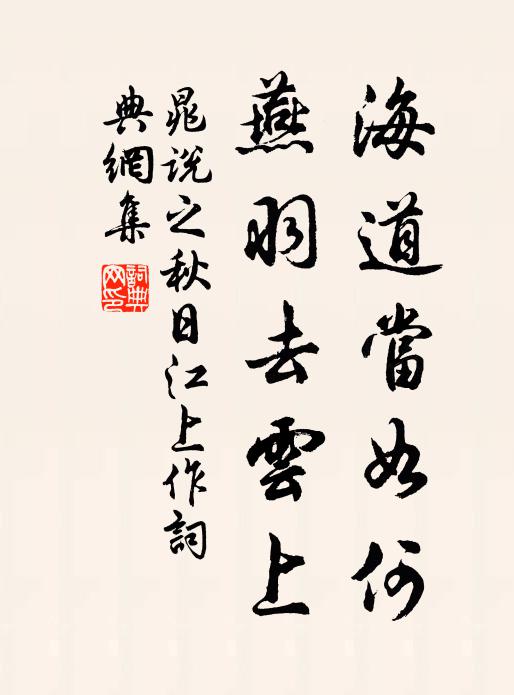 海道當如何
燕羽去雲上
晁說之秋日江上作詞
典網集
詞典
网印